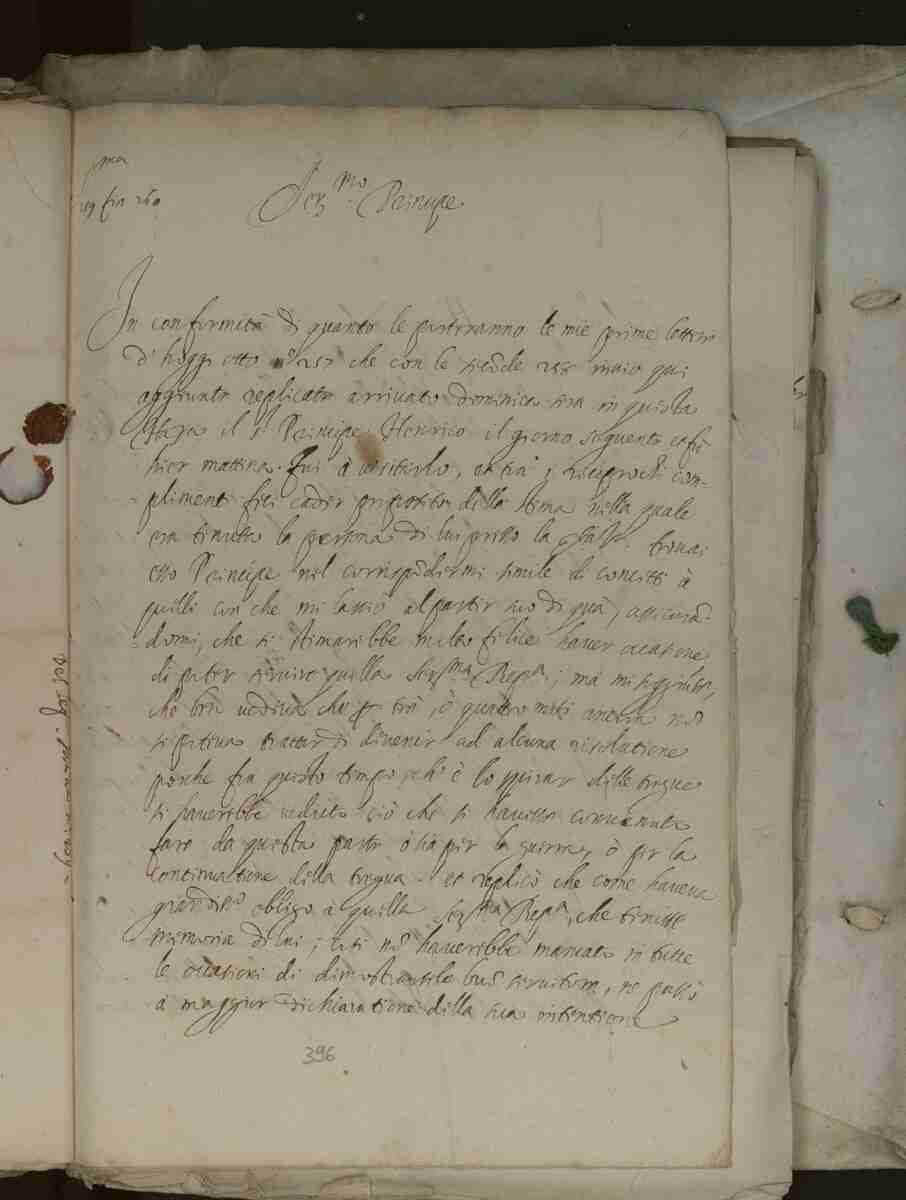 ma
259 fin 260
Ser.mo Principe
In conformità di quanto le porteranno le mie prime lettere
d'hoggi otto n.o 257 che con le secõde 258 invio qui
aggiunte replicate arrivato Domenica sera in questa
Haya il S.r Principe Henrico il giorno seguente che fù
hier mattina fui à visitarlo, et trà i reciprochi com-
plimenti feci cader proposito della stima nella quale
era tenuta la persona di lui presso la Ser.tà V.ra trovai
esso Principe nel corrispõdermi simile di concetti à
quelli con che mi lassò al partir suo di quà, assicurã-
domi, che si stimarebbe molto felice haver occasione
di poter servire quella Ser.ma Rep.ca; mà mi soggiunse,
che ben vedeva che per trè, ò quattro mesi ancora nõ
si poteva trattar di divenir ad alcuna risolutione
perche fra questo tempo ch'è lo spirar delle tregue
si haverebbe veduto ciò che si havesse convenuto
fare da questa parte ò sia per la guerra, ò per la
continuatione della tregua. et replicò che come haveva
grandiss.o obligo à quella Ser.ma Rep.ca, che tenisse
memoria di lui; così nõ haverebbe mancato in tutte
le occasioni di dimostrarsele buõ servitore, ne passò
à maggior dichiaratione della sua intentione
396